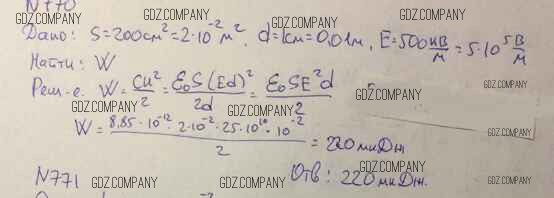 N770
GDZ.COMPANY GDZ.COMPANY GDZ.COMPANY
Дано: S=200см²=2·10⁻²м², d=1см=0,01м, E=500кВ/м=5·10⁵В/м
Найти: W GDZ.COMPANY GDZ.COMPANY GDZ.COMPANY
Реш-е. W=CU²/2=ε₀S(Ed)²/2d=ε₀SE²d/2
GDZ.COMPANY GDZ.COMPANY GDZ.COMPANY
W=8,85·10⁻¹²·2·10⁻²·25·10¹⁰·10⁻²/2=220мкДж
GDZ.COMPANY
N771 GDZ.COMPANY Отв: 220мкДж.
GDZ.COMPANY GDZ.COMPANY